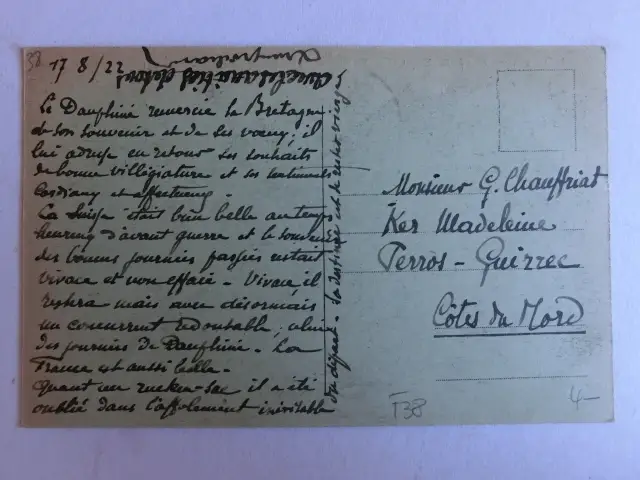 38
17 8/22
Le Dauphiné remercie la Bretagne
de son souvenir et de ses vœux, il
lui adresse en retour ses souhaits
de bonne villégiature et ses sentiments
cordiaux et affectueux -
La Suisse était bien belle au temps
heureux d'avant guerre et le souvenir
des bonnes journées passées restait
vivace et non effacé - Vivace il
restera mais avec désormais
un concurrent redoutable, celui
des journées de Dauphiné - La
France est aussi belle -
Quant au rucken-sac il a été
oublié dans l'affolement inévitable
du départ - sa destinée est de rester vierge
avec les amitiés de tous
Monsieur G. Chauffriat
Ker Madeleine
Perros - Guirrec
Côtes du Nord
F38
4-